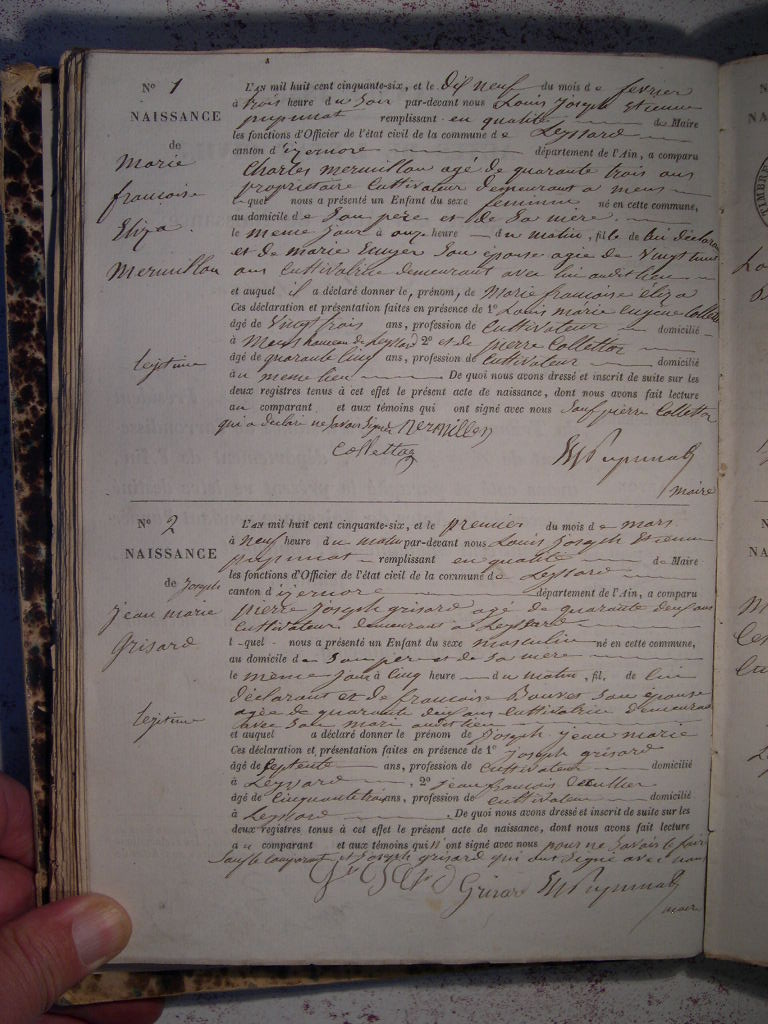 N° 1
NAISSANCE
de
Marie
francoise
Eliza
Mermillon
legitime
L'AN mil huit cent cinquante-six, et le dix neuf du mois de fevrier
à trois heure du soir par-devant nous Louis Joseph Etienne
pupunat remplissant en qualité de Maire
les fonctions d'Officier de l'état civil de la commune de Leyssard
canton d'izernore département de l'Ain, a comparu
Charles mermillon agé de quarante trois ans
proprietaire Cultivateur demeurant a mens
lequel nous a présenté un Enfant du sexe feminin né en cette commune,
au domicile de Son père et de Sa mère.
le meme jour à onze heure du matin, fille de lui déclarant
et de marie Son épouse agée de Vingt
ans Cultivatrice demeurant avec lui audit lieu
et auquel il a déclaré donner le, prénom, de Marie francoise éliza
Ces déclaration et présentation faites en présence de 1° Louis marie eugène Collettaz
âgé de Vingt trois ans, profession de Cultivateur domicilié
à Mens hameau de Leyssard 2° et de pierre Collettaz
âgé de quarante cinq ans, profession de Cultivateur domicilié
au meme lieu De quoi nous avons dressé et inscrit de suite sur les
deux registres tenus à cet effet le présent acte de naissance, dont nous avons fait lecture
au comparant et aux témoins qui ont signé avec nous Sauf pierre Collettaz
qui a déclaré ne Savoir Signer Mermillon
Collettaz
pupunat
maire
N° 2
NAISSANCE
de Joseph
jean marie
Grisard
legitime
L'AN mil huit cent cinquante-six, et le premier du mois de mars
à neuf heure du matin par-devant nous Louis Joseph Etienne
pupunat remplissant en qualité de Maire
les fonctions d'Officier de l'état civil de la commune de Leyssard
canton d'izernore département de l'Ain, a comparu
pierre Joseph grisard agé de quarante deux ans
Cultivateur demeurant a Leyssard
lequel nous a présenté un Enfant du sexe masculin né en cette commune,
au domicile de Son père et de Sa mère
le meme jour à cinq heure du matin, fil. de lui
déclarant et de francoise Bouvet Son épouse
agée de quarante deux ans Cultivatrice demeurant
avec Son mari audit lieu
et auquel a déclaré donner le prénom de Joseph jean marie
Ces déclaration et présentation faites en présence de 1° Joseph grisard
âgé de Septente ans, profession de Cultivateur domicilié
à Leyssard, 2° jean francois
âgé de Cinquante trois ans, profession de Cultivateur domicilié
à Leyssard De quoi nous avons dressé et inscrit de suite sur les
deux registres tenus à cet effet le présent acte de naissance, dont nous avons fait lecture
au comparant et aux témoins qui n'ont signé avec nous pour ne Savoir le faire
Sauf le comparant et Joseph grisard qui ont Signé avec nous
Grisard pupunat
maire